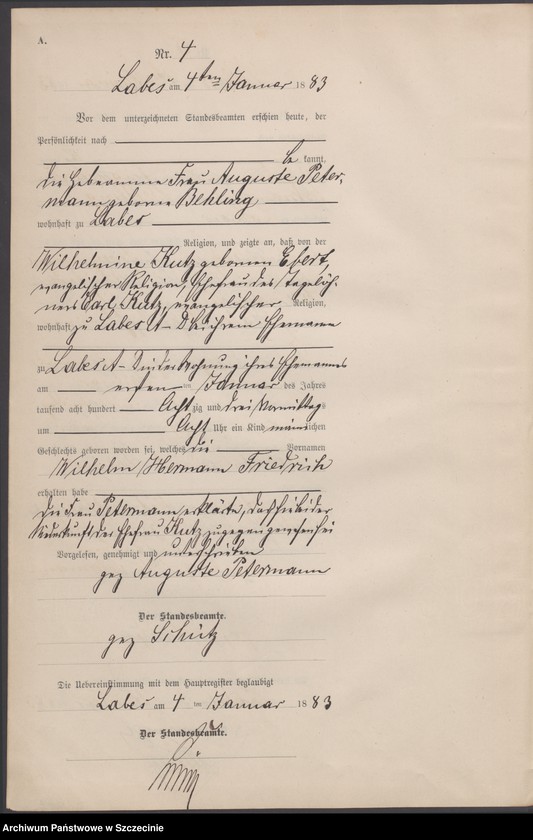 A.
Nr. 4
Labes am 4ten Januar 1883
Vor dem unterzeichneten Standesbeamten erschien heute, der
Persönlichkeit nach
be kannt,
die Hebeamme Frau Auguste Peter-
mann geborne Behling
wohnhaft zu Labes
Religion, und zeigte an, daß von der
Wilhelmine Kutz gebornen Ebert,
evangelischer Religion, Ehefrau des Tagelöh-
ners Carl Kutz, evangelischer Religion,
wohnhaft zu Labes A bei ihrem Ehemann
zu Labes A in der Wohnung ihres Ehemannes
am ersten ten Januar des Jahres
tausend acht hundert Acht zig und drei Vormittags
um Acht Uhr ein Kind männlichen
Geschlechts geboren worden sei, welches die Vornamen
Wilhelm Hermann Friedrich
erhalten habe
Die Frau Petermann erklärte, daß sie bei der
Niederkunft der Ehefrau Kutz zugegen gewesen sei
Vorgelesen, genehmigt und unterschrieben
gez Auguste Petermann
Der Standesbeamte.
gez Schütz
Die Uebereinstimmung mit dem Hauptregister beglaubigt
Labes am 4 ten Januar 1883
Der Standesbeamte.
Archiwum Państwowe w Szczecinie